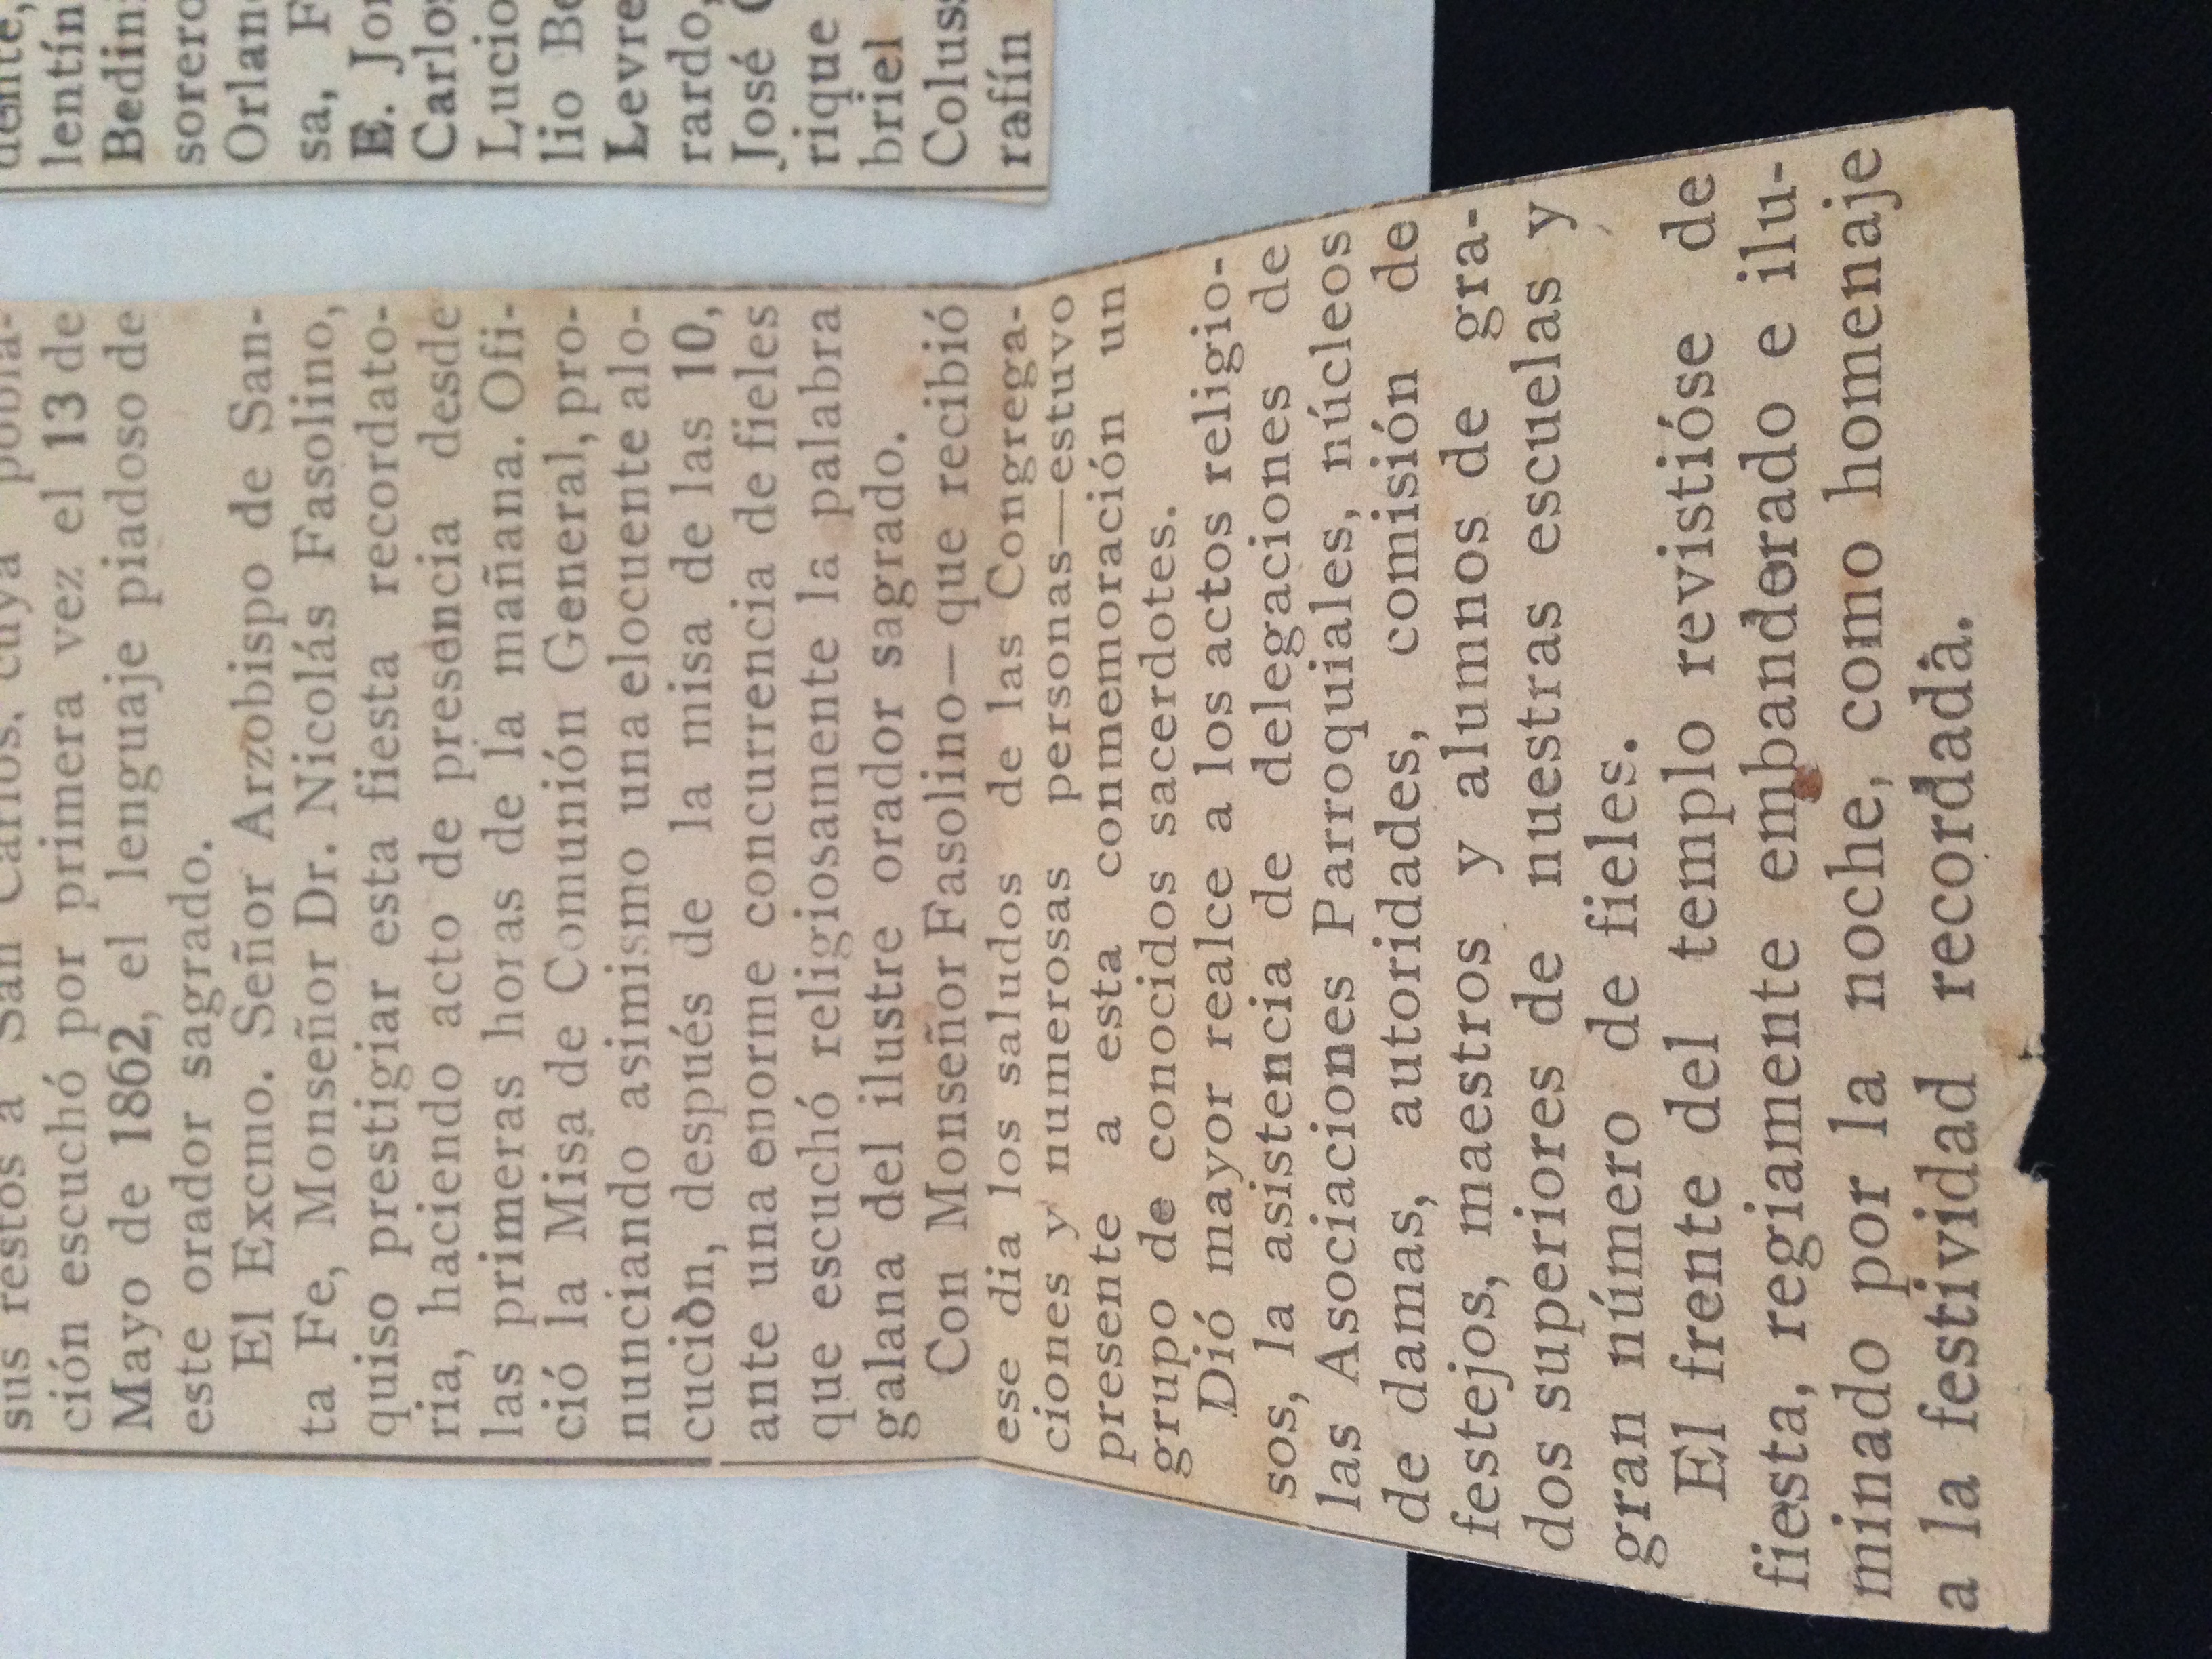 sus restos a San Carlos, cuya pobla-
ción escuchó por primera vez el 13 de
Mayo de 1862, el lenguaje piadoso de
este orador sagrado.
El Excmo. Señor Arzobispo de San-
ta Fe, Monseñor Dr. Nicolás Fasolino,
quiso prestigiar esta fiesta recordato-
ria, haciendo acto de presencia desde
las primeras horas de la mañana. Ofi-
ció la Misa de Comunión General, pro-
nunciando asimismo una elocuente alo-
cución, después de la misa de las 10,
ante una enorme concurrencia de fieles
que escuchó religiosamente la palabra
galana del ilustre orador sagrado.
Con Monseñor Fasolino—que recibió
ese dia los saludos de las Congrega-
ciones y numerosas personas—estuvo
presente a esta conmemoración un
grupo de conocidos sacerdotes.
Dió mayor realce a los actos religio-
sos, la asistencia de delegaciones de
las Asociaciones Parroquiales, núcleos
de damas, autoridades, comisión de
festejos, maestros y alumnos de gra-
dos superiores de nuestras escuelas y
gran número de fieles.
El frente del templo revistióse de
fiesta, regiamente embanderado e ilu-
minado por la noche, como homenaje
a la festividad recordada.
dente,
lentín
Bedin
sorero
Orlan
sa, F
E. Jo
Carlo
Lucio
lio Be
Levre
rardo,
José
rique
briel
Colus
rafín